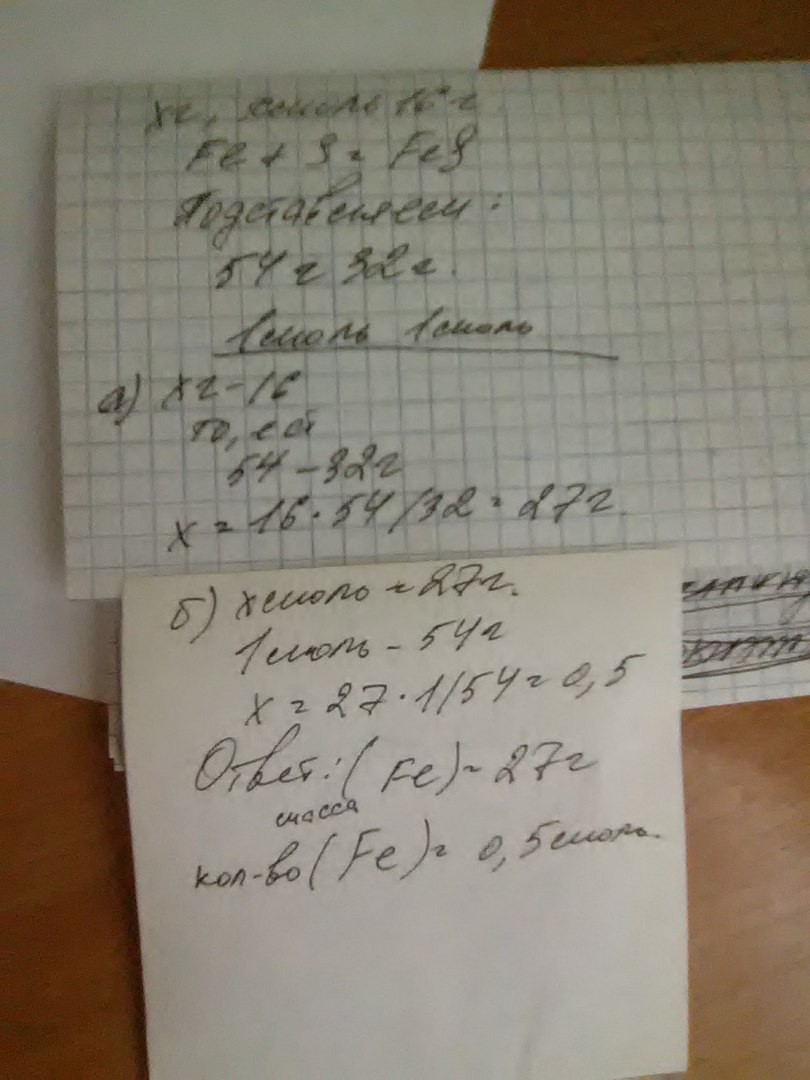 хг, хмоль 16 г
Fe + S = FeS
Подставляем:
54 г 32 г.
1 моль 1 моль
а) хг - 16
то, ест
54 - 32г
х = 16 · 54 / 32 = 27 г.
б) хмоль = 27 г.
1 моль - 54 г
х = 27 · 1/54 = 0,5
Ответ: (Fe) = 27 г
масса
кол-во (Fe) = 0,5 моль.